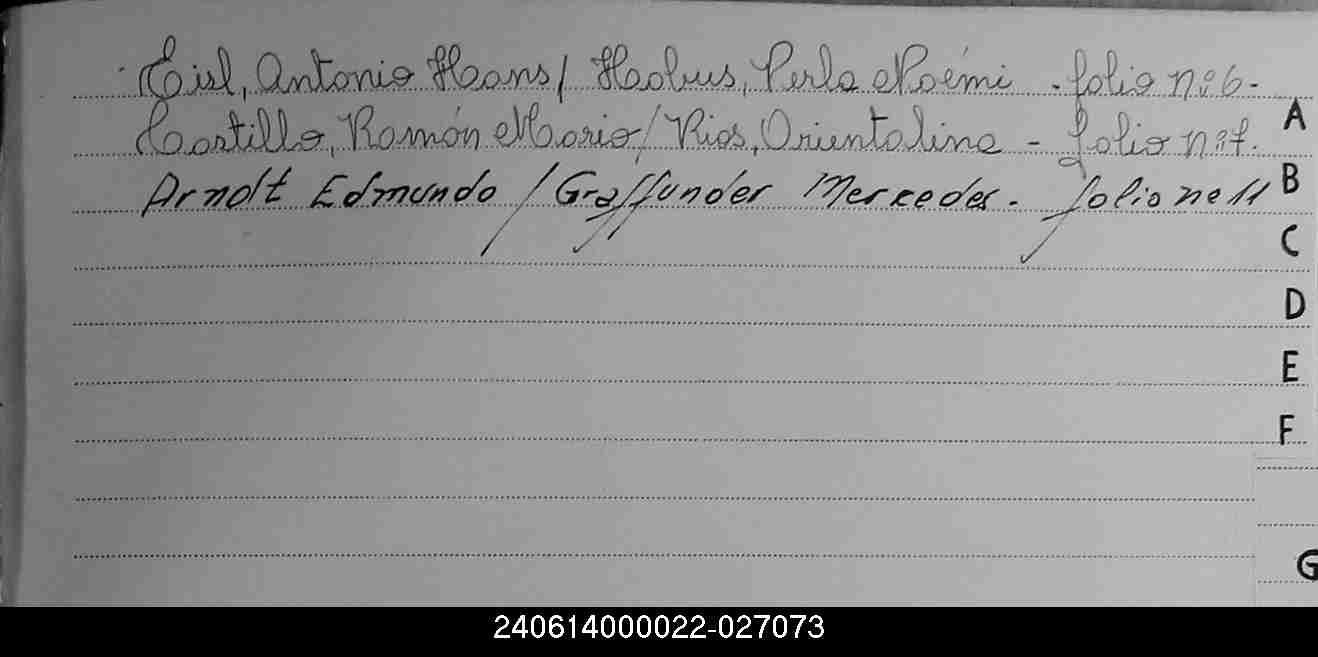 Eisl, Antonio Hans / Hobus, Perla Noemí - folio nº 6-
Castillo, Ramón Mario / Rios, Orientalina - folio nº 7.
Arnolt Edmundo / Graffunder Mercedes. folio nº 11
A
B
C
D
E
F
G
240614000022-027073